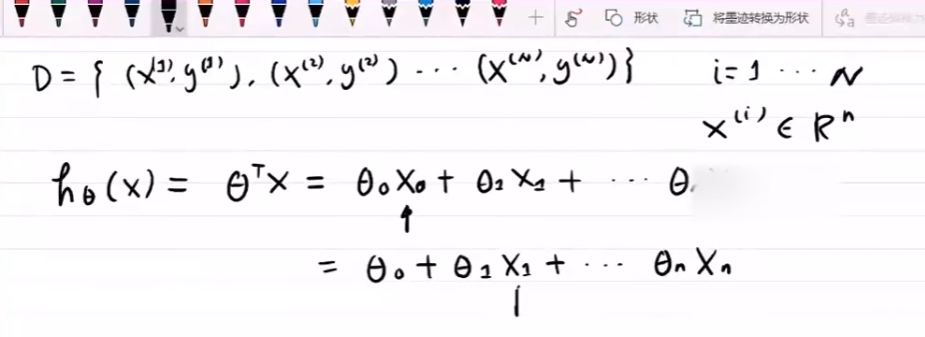 形状 将墨迹转换为形状
D = { (x⁽¹⁾, y⁽¹⁾), (x⁽²⁾, y⁽²⁾) ··· (x⁽ᴺ⁾, y⁽ᴺ⁾)} i = 1 ··· N
x⁽ⁱ⁾ ∈ Rⁿ
hθ(x) = θᵀx = θ₀x₀ + θ₁x₁ + ··· θ
= θ₀ + θ₁x₁ + ··· θₙxₙ